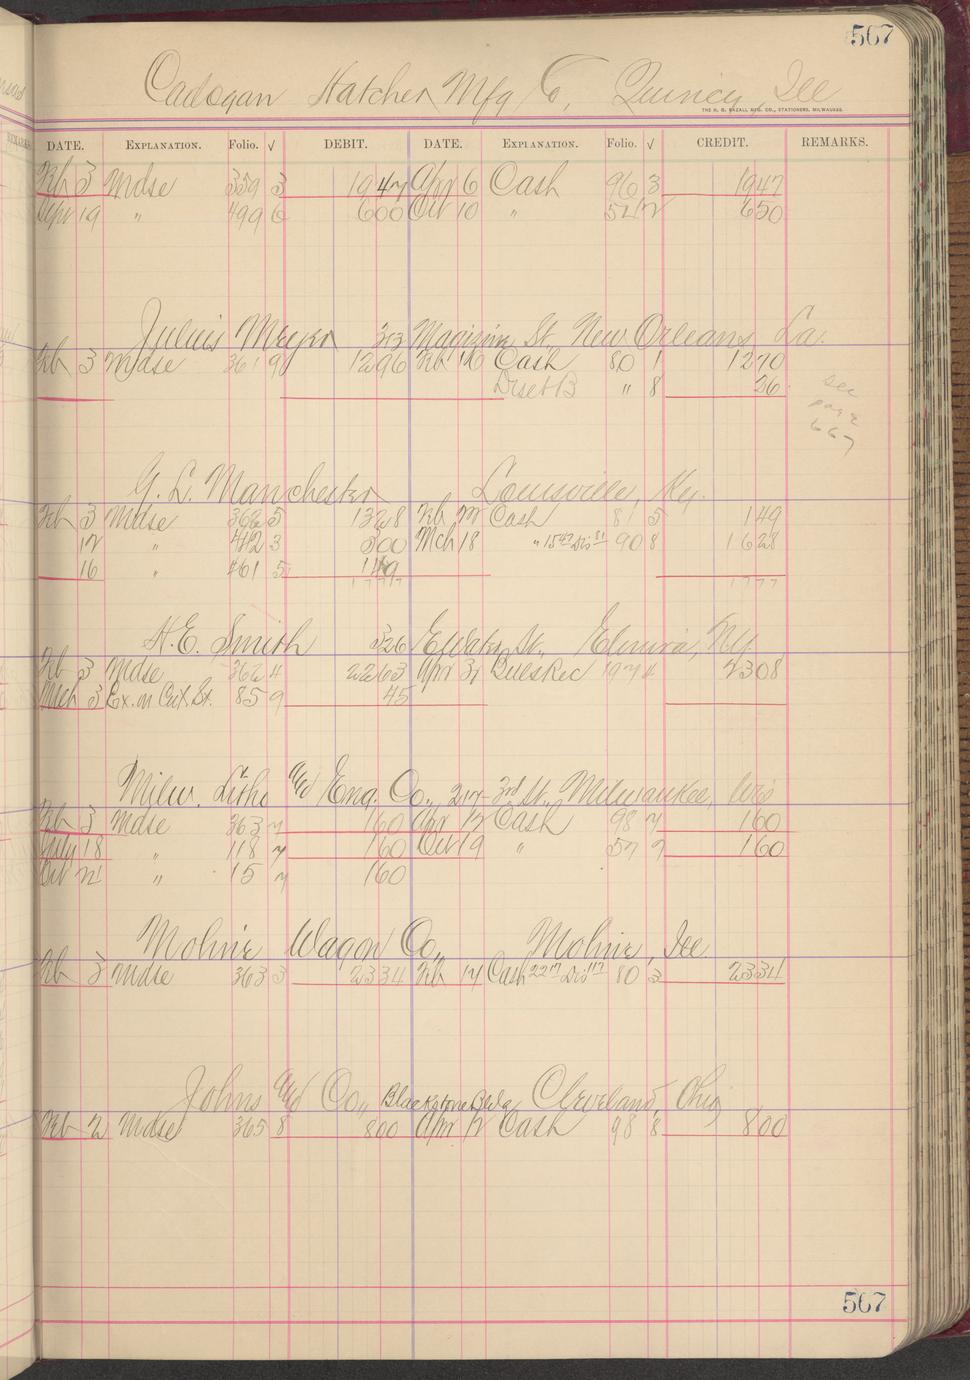 567
Cadogan Hatcher Mfg Co, Quincy, Ill
THE H. G. RAZALL MFG. CO., STATIONERS, MILWAUKEE.
DATE. EXPLANATION. Folio. √ DEBIT. DATE. EXPLANATION. Folio. √ CREDIT. REMARKS.
Feb 3 Mdse 359 3 1947 Apr 6 Cash 96 3 1947
Apr 19 " 499 6 600 Oct 10 " 650
Julius Meyer 313 Magizine St. New Orleans, La.
Feb 3 Mdse 361 9 1296 Feb 16 Cash 80 1 1270
Disct B " 8 26
see
page
667
G. L. Manchester Louisville, Ky.
Feb 3 Mdse 362 5 1328 Feb Cash 81 5 149
12 " 442 3 300 Mch 18 " 90 8 1628
16 " 461 5 149
1777 1777
H. E. Smith 326 E Water St. Elmira, N.Y.
Feb 3 Mdse 362 4 2263 Apr Bills Rec 197 4 2308
Mch 3 Ex. on 85 9 45
Milw. Litho & Eng. Co., 3rd St. Milwaukee, Wis
Feb 3 Mdse 363 7 160 Apr 12 Cash 98 7 160
July 18 " 118 7 160 Oct 19 " 57 7 160
Oct 21 " 15 7 160
Moline Wagon Co., Moline, Ill.
Feb 3 Mdse 363 3 2334 Feb 14 Cash 80 3 2334
Johns Co., Blackstone Bldg Cleveland, Ohio
Feb 2 Mdse 365 8 800 Apr 12 Cash 98 8 800
567